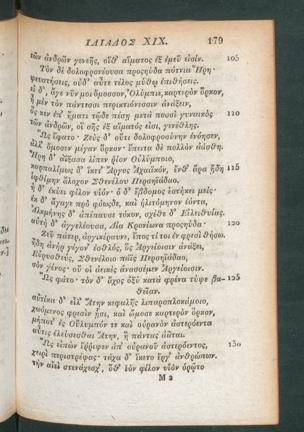 ΙΛΙΑΔΟΣ XIX. 179
τῶν ἀνδρῶν γενεῆς, οἵθ' αἵματος ἐξ ἐμεῦ εἰσίν. 105
Τὸν δὲ δολοφρονέουσα προσηύδα πότνια Ἥρη·
ψευστήσεις, οὐδ' αὖτε τέλος μύθῳ ἐπιθήσεις.
εἰ δ', ἄγε νῦν μοι ὄμοσσον, Ὀλύμπιε, καρτερὸν ὅρκον,
ἦ μὲν τὸν πάντεσσι περικτιόνεσσιν ἀνάξειν,
ὅς κεν ἐπ' ἤματι τῷδε πέσῃ μετὰ ποσσὶ γυναικὸς 110
τῶν ἀνδρῶν, οἳ σῆς ἐξ αἵματός εἰσι, γενέθλης.
Ὣς ἔφατο· Ζεὺς δ' οὔτι δολοφροσύνην ἐνόησεν,
ἀλλ' ὄμοσεν μέγαν ὅρκον· ἔπειτα δὲ πολλὸν ἀάσθη.
Ἥρη δ' ἀΐξασα λίπεν ῥίον Οὐλύμποιο,
καρπαλίμως δ' ἵκετ' Ἄργος Ἀχαιϊκὸν, ἔνθ' ἄρα ᾔδη 115
ἰφθίμην ἄλοχον Σθενέλου Περσηϊάδαο.
ἡ δ' ἐκύει φίλον υἱόν· ὁ δ' ἕβδομος ἑστήκει μείς·
ἐκ δ' ἄγαγε πρὸ φόωσδε, καὶ ἠλιτόμηνον ἐόντα,
Ἀλκμήνης δ' ἀπέπαυσε τόκον, σχέθε δ' Εἰλειθυίας.
αὐτὴ δ' ἀγγελέουσα, Δία Κρονίωνα προσηύδα· 120
Ζεῦ πάτερ, ἀργικέραυνε, ἔπος τί τοι ἐν φρεσὶ θήσω.
ἤδη ἀνὴρ γέγον' ἐσθλὸς, ὃς Ἀργείοισιν ἀνάξει,
Εὐρυσθεὺς, Σθενέλοιο πάϊς Περσηϊάδαο,
σὸν γένος· οὔ οἱ ἀεικὲς ἀνασσέμεν Ἀργείοισιν.
Ὣς φάτο· τὸν δ' ἄχος ὀξὺ κατὰ φρένα τύψε βα- 125
θεῖαν.
αὐτίκα δ' εἷλ' Ἄτην κεφαλῆς λιπαροπλοκάμοιο,
χωόμενος φρεσὶν ᾗσι, καὶ ὤμοσε καρτερὸν ὅρκον,
μήποτ' ἐς Οὔλυμπόν τε καὶ οὐρανὸν ἀστερόεντα
αὖτις ἐλεύσεσθαι Ἄτην, ἣ πάντας ἀᾶται.
Ὣς εἰπὼν ἔῤῥιψεν ἀπ' οὐρανοῦ ἀστερόεντος, 130
χειρὶ περιστρέψας· τάχα δ' ἵκετο ἔργ' ἀνθρώπων.
τὴν αἰεὶ στενάχεσχ', ὅθ' ἑὸν φίλον υἱὸν ὁρῷτο
M 2